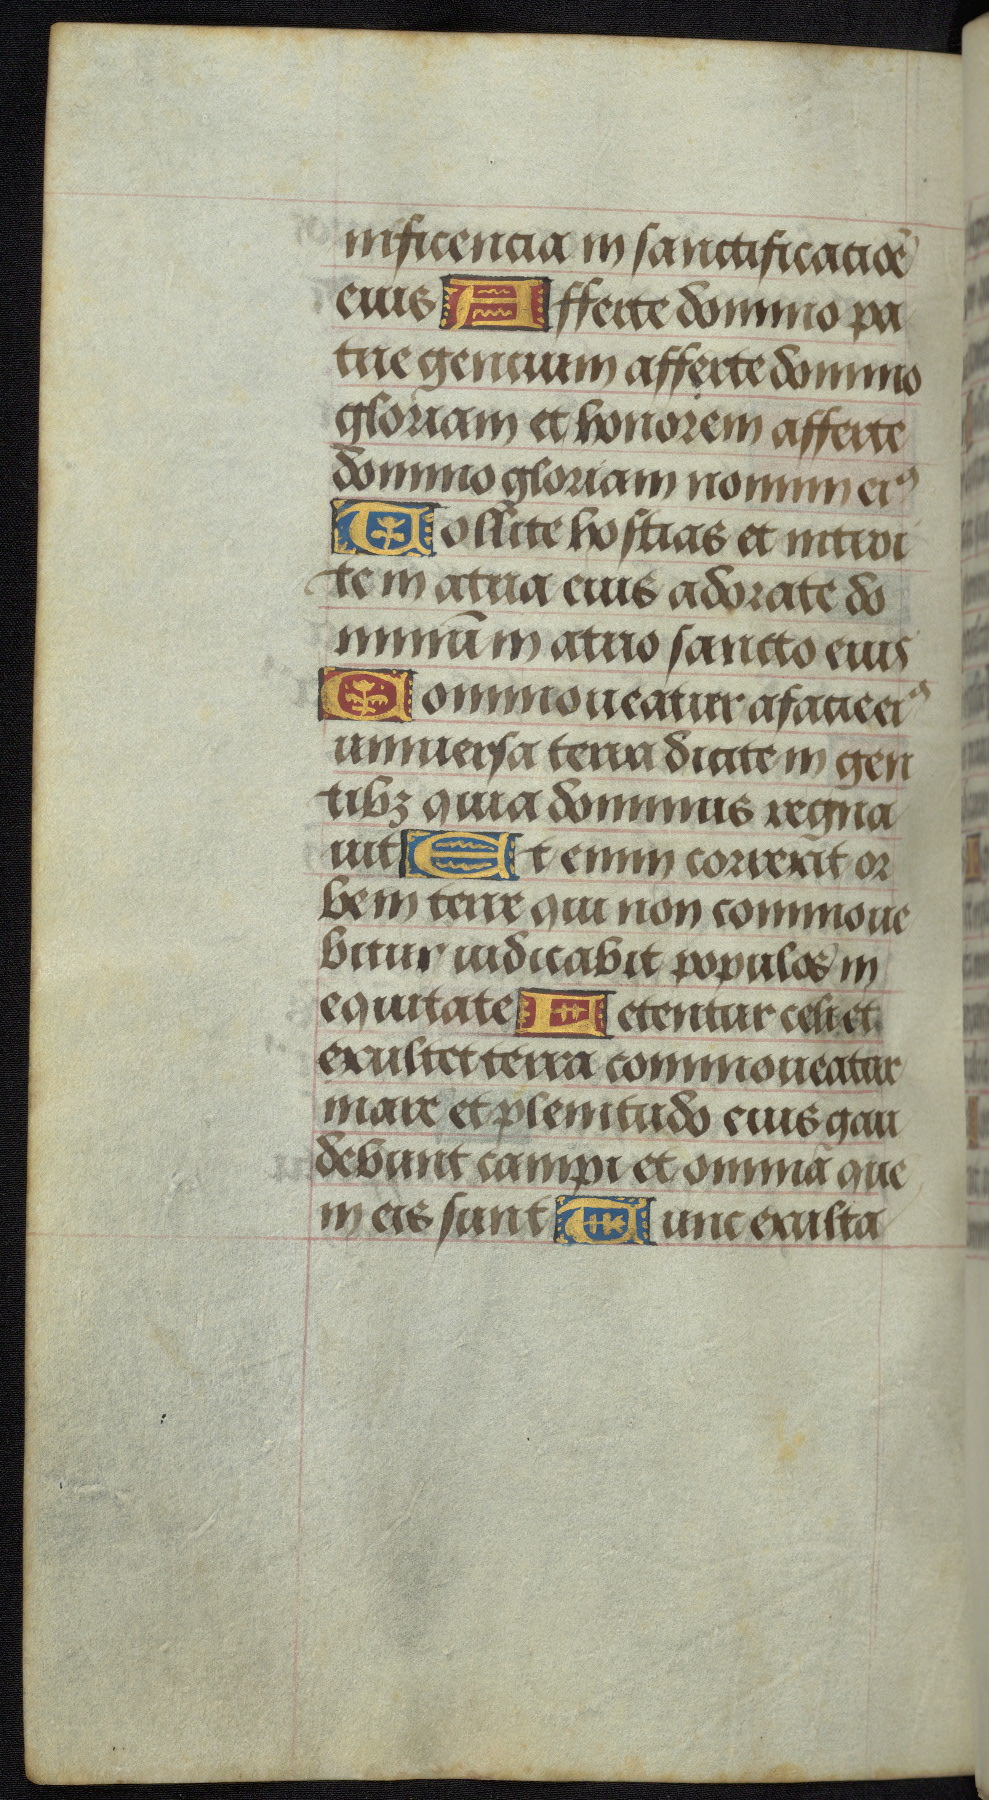 nificencia in sanctificatiōe
eius Afferte domino pa
trie gencium afferte domino
gloriam et honorem afferte
domino gloriam nomini eiꝰ
Tollite hostias et introi
te in atria eius adorate do
minū in atrio sancto eius
Commoueatur a facie eiꝰ
uniuersa terra dicite in gen
tibꝫ quia dominus regna
uit Et enim correxit or
bem terre qui non commoue
bitur iudicabit populos in
equitate Letentur celi et
exultet terra commoueatur
mare et plenitudo eius gau
debunt campi et omnia que
in eis sunt Tunc exulta